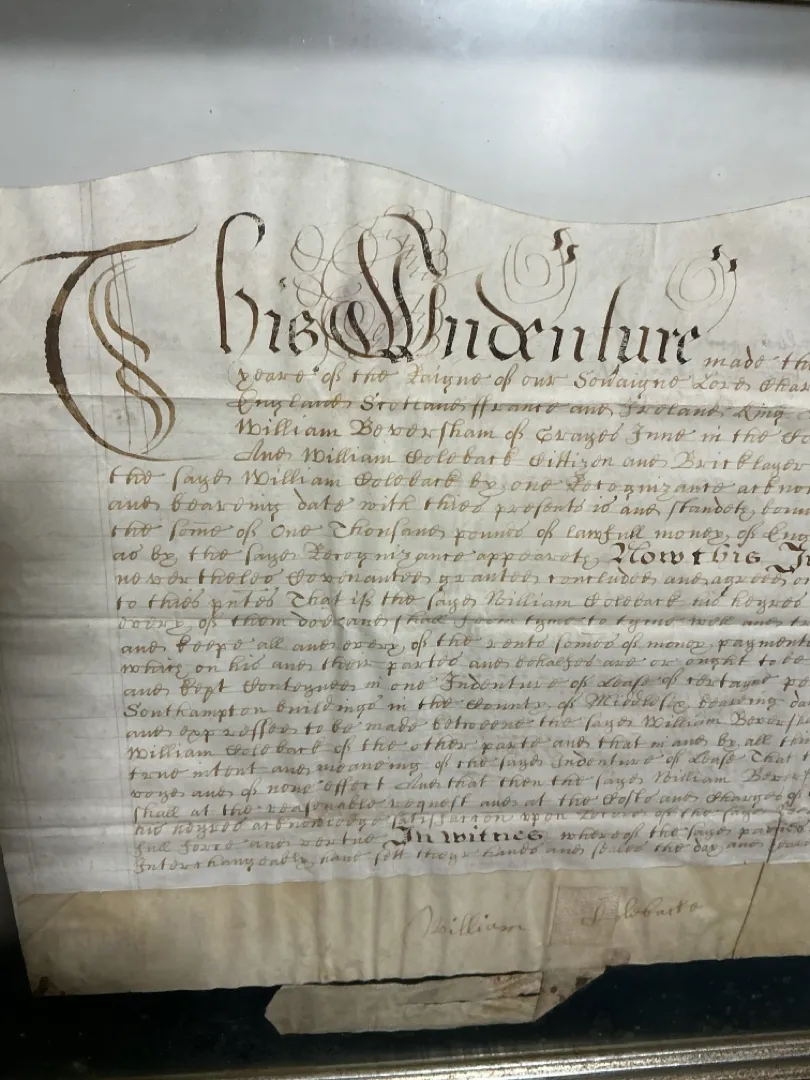 This Indenture made the
yeare of the Raigne of our Soveraigne Lord Char
England Scotland ffrance and Ireland King
William Beversham of Grayes Inne in the Co
And William Coleback Cittizen and Bricklayer
the sayd William Coleback by one Recognizance acknow
and bearing date with thies presents is and standeth bound
the some of One Thousand pounds of lawfull money of Eng
as by the sayd Recognizance appeareth Now this In
nevertheles Covenanted granted concluded and agreed
to thies pnts That if the sayd William Coleback his heyres
every of them doe and shall from tyme to tyme well and
and keepe all and every of the rents somes of money payments
which on his and their partes and behalfes are or ought to be
and kept Conteyned in one Indenture of Lease of certayne
Southampton buildings in the County of Middlesex bearing da
and expressed to be made betweene the sayd William Beversha
William Coleback of the other parte and that in and by all things
true intent and meaning of the sayd Indenture of Lease That
voyd and of none effect And that then the sayd William Bevers
shall at the reasonable request and at the Costs and Charges of
his heyres acknowledge satisfaccon upon Record of the sayd
full force and vertue In witnes whereof the sayd parties
Interchangeably have sett theyr hands and seales the day and yeare
William Coleback